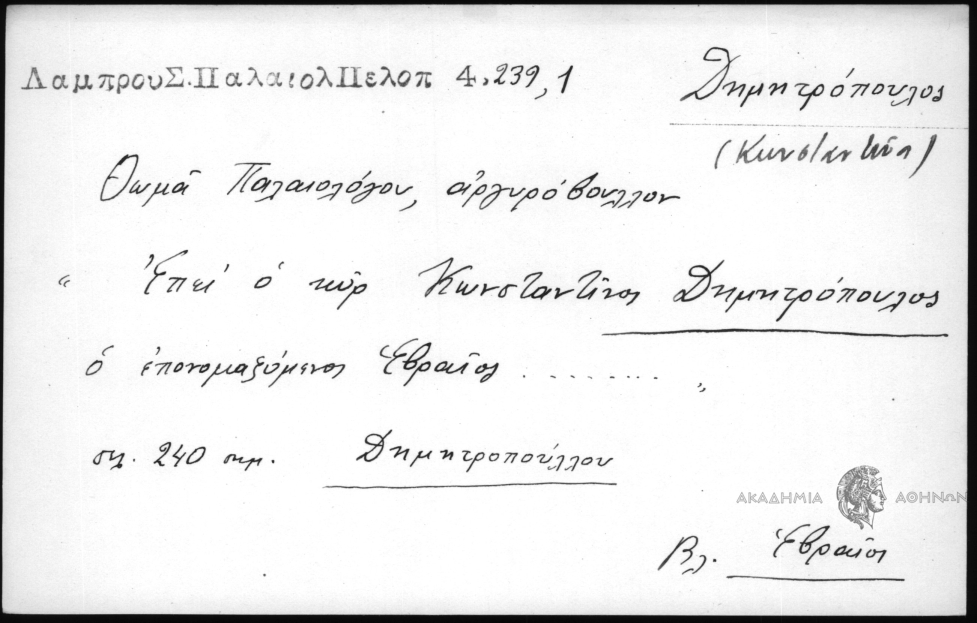 ΛαμπρουΣ.ΠαλαιολΠελοπ 4,239,1
Δημητρόπουλος
(Κωνσταντῖνο)
Θωμᾶ Παλαιολόγου, ἀργυρόβουλλον
" Ἐπεὶ ὁ κὺρ Κωνσταντῖνος Δημητρόπουλος
ὁ ἐπονομαζόμενος Ἑβραῖος ......... "
σελ. 240 σημ. Δημητροπούλλου
ΑΚΑΔΗΜΙΑ ΑΘΗΝΩΝ
Βλ. Ἑβραῖος